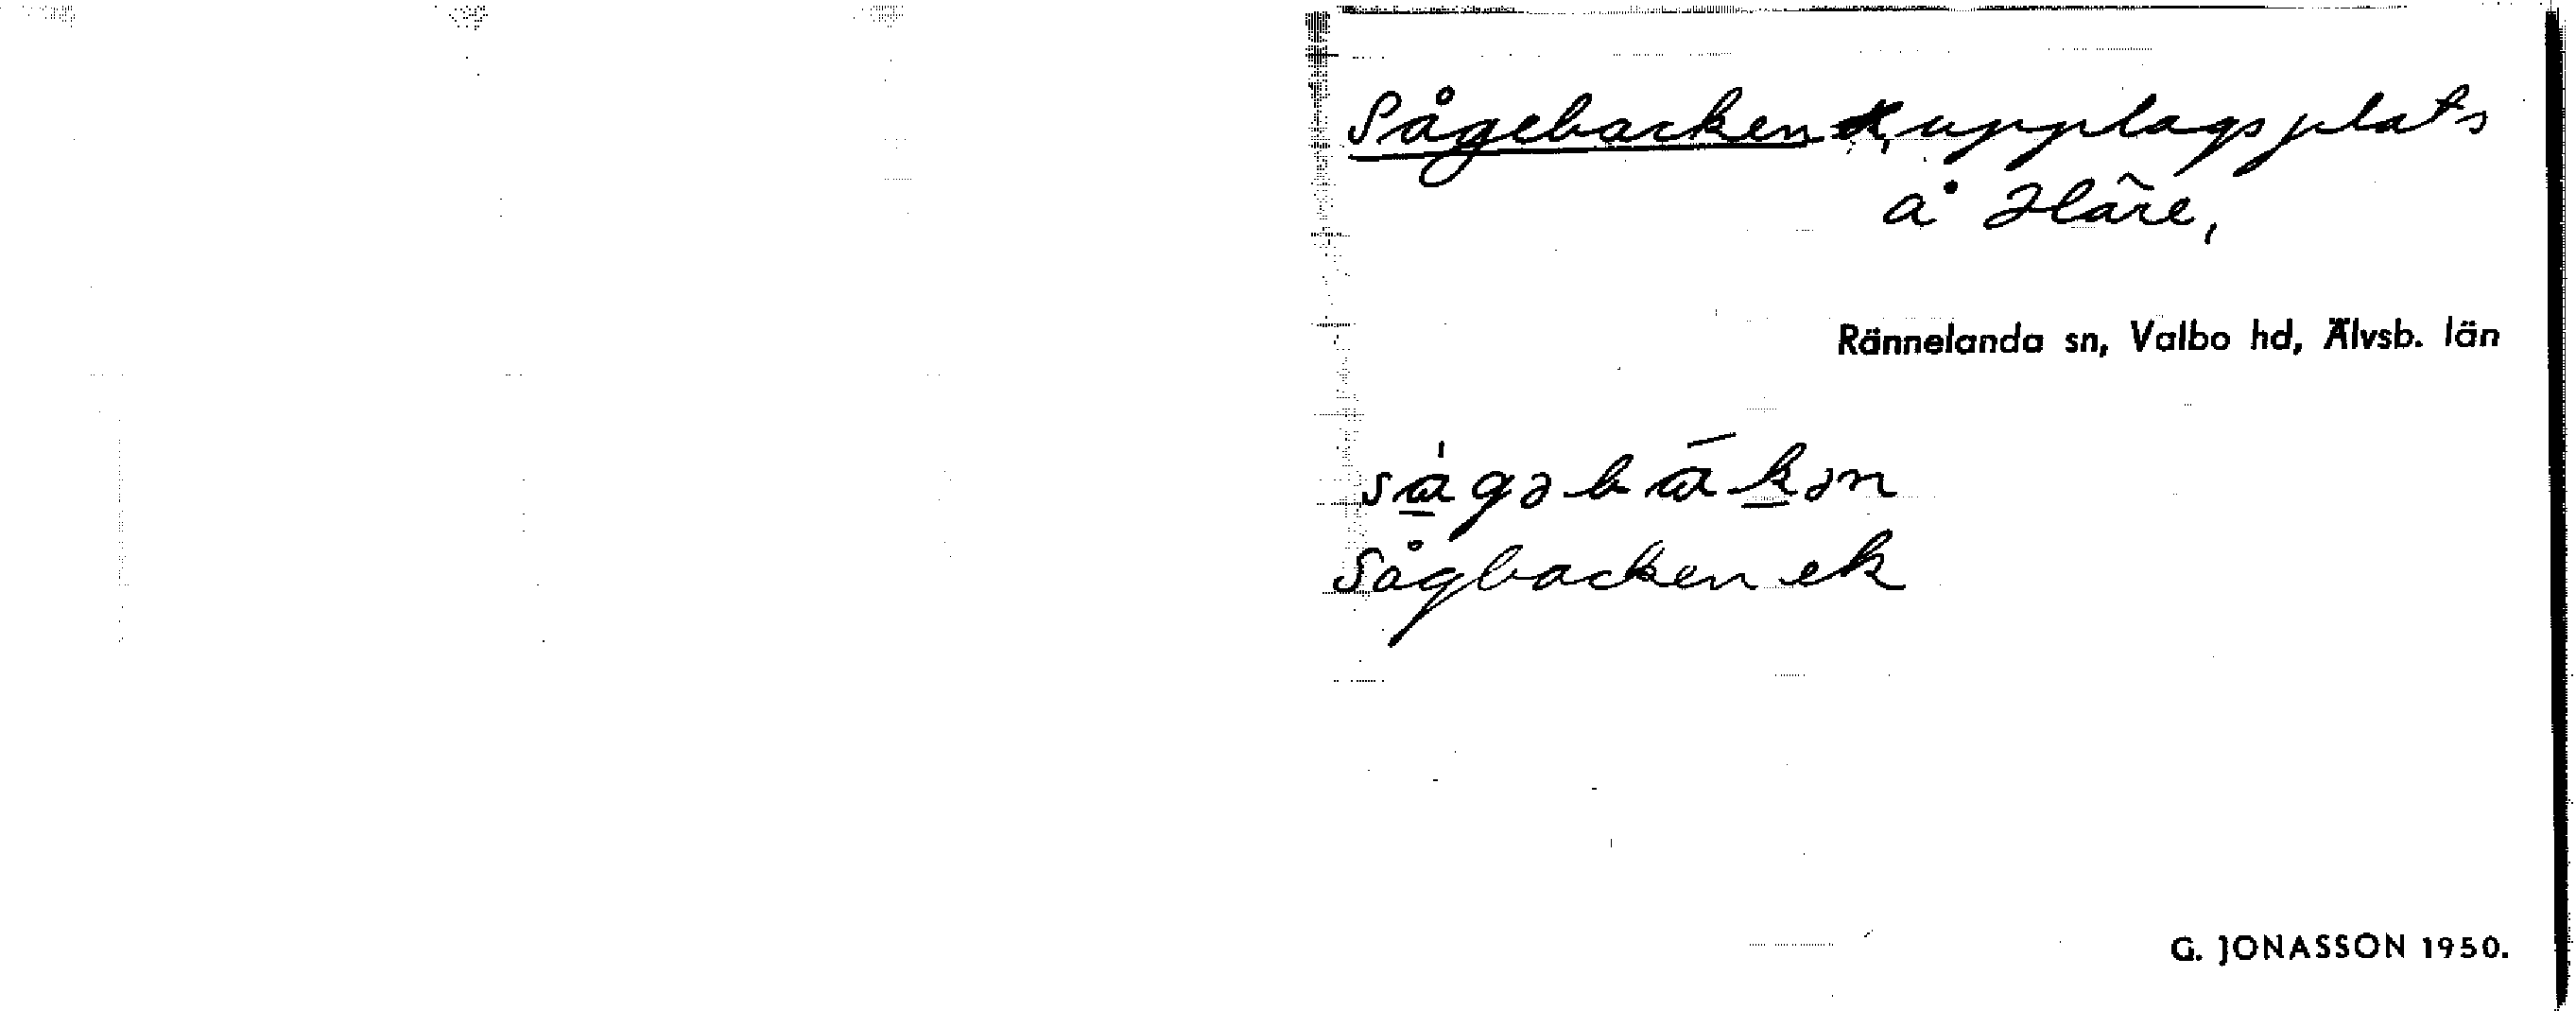 Sågebacken, upplagsplats
å Häre,
Rännelanda sn, Valbo hd, Älvsb. län
sågəbakən
Sågbacken ek
G. JONASSON 1950.